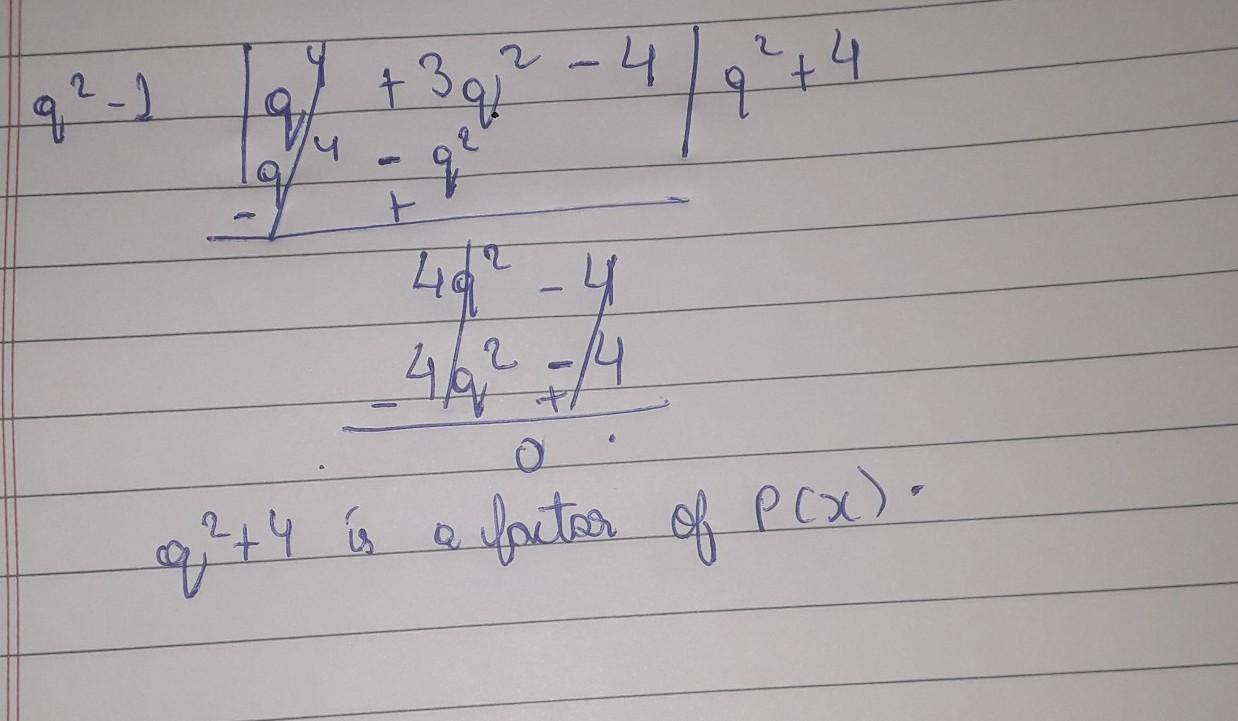 q² - 1 | q⁴ + 3q² - 4 | q² + 4
q⁴ - q²
- +
4q² - 4
4q² - 4
- +
0
q² + 4 is a factor of P(x).